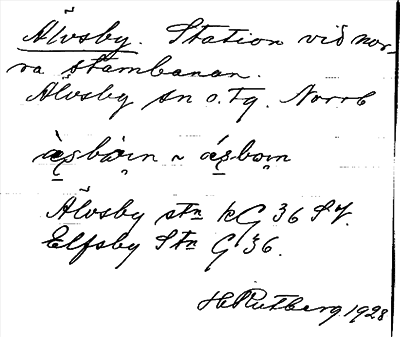 Älvsby. Station vid nor-
ra stambanan.
Älvsby sn o. tg. Norrb
àsbo̥in ~ ásbo̥in
Älvsby stn KG 36 Sf.
Elfsby Stn G 36.
H Rutberg 1928